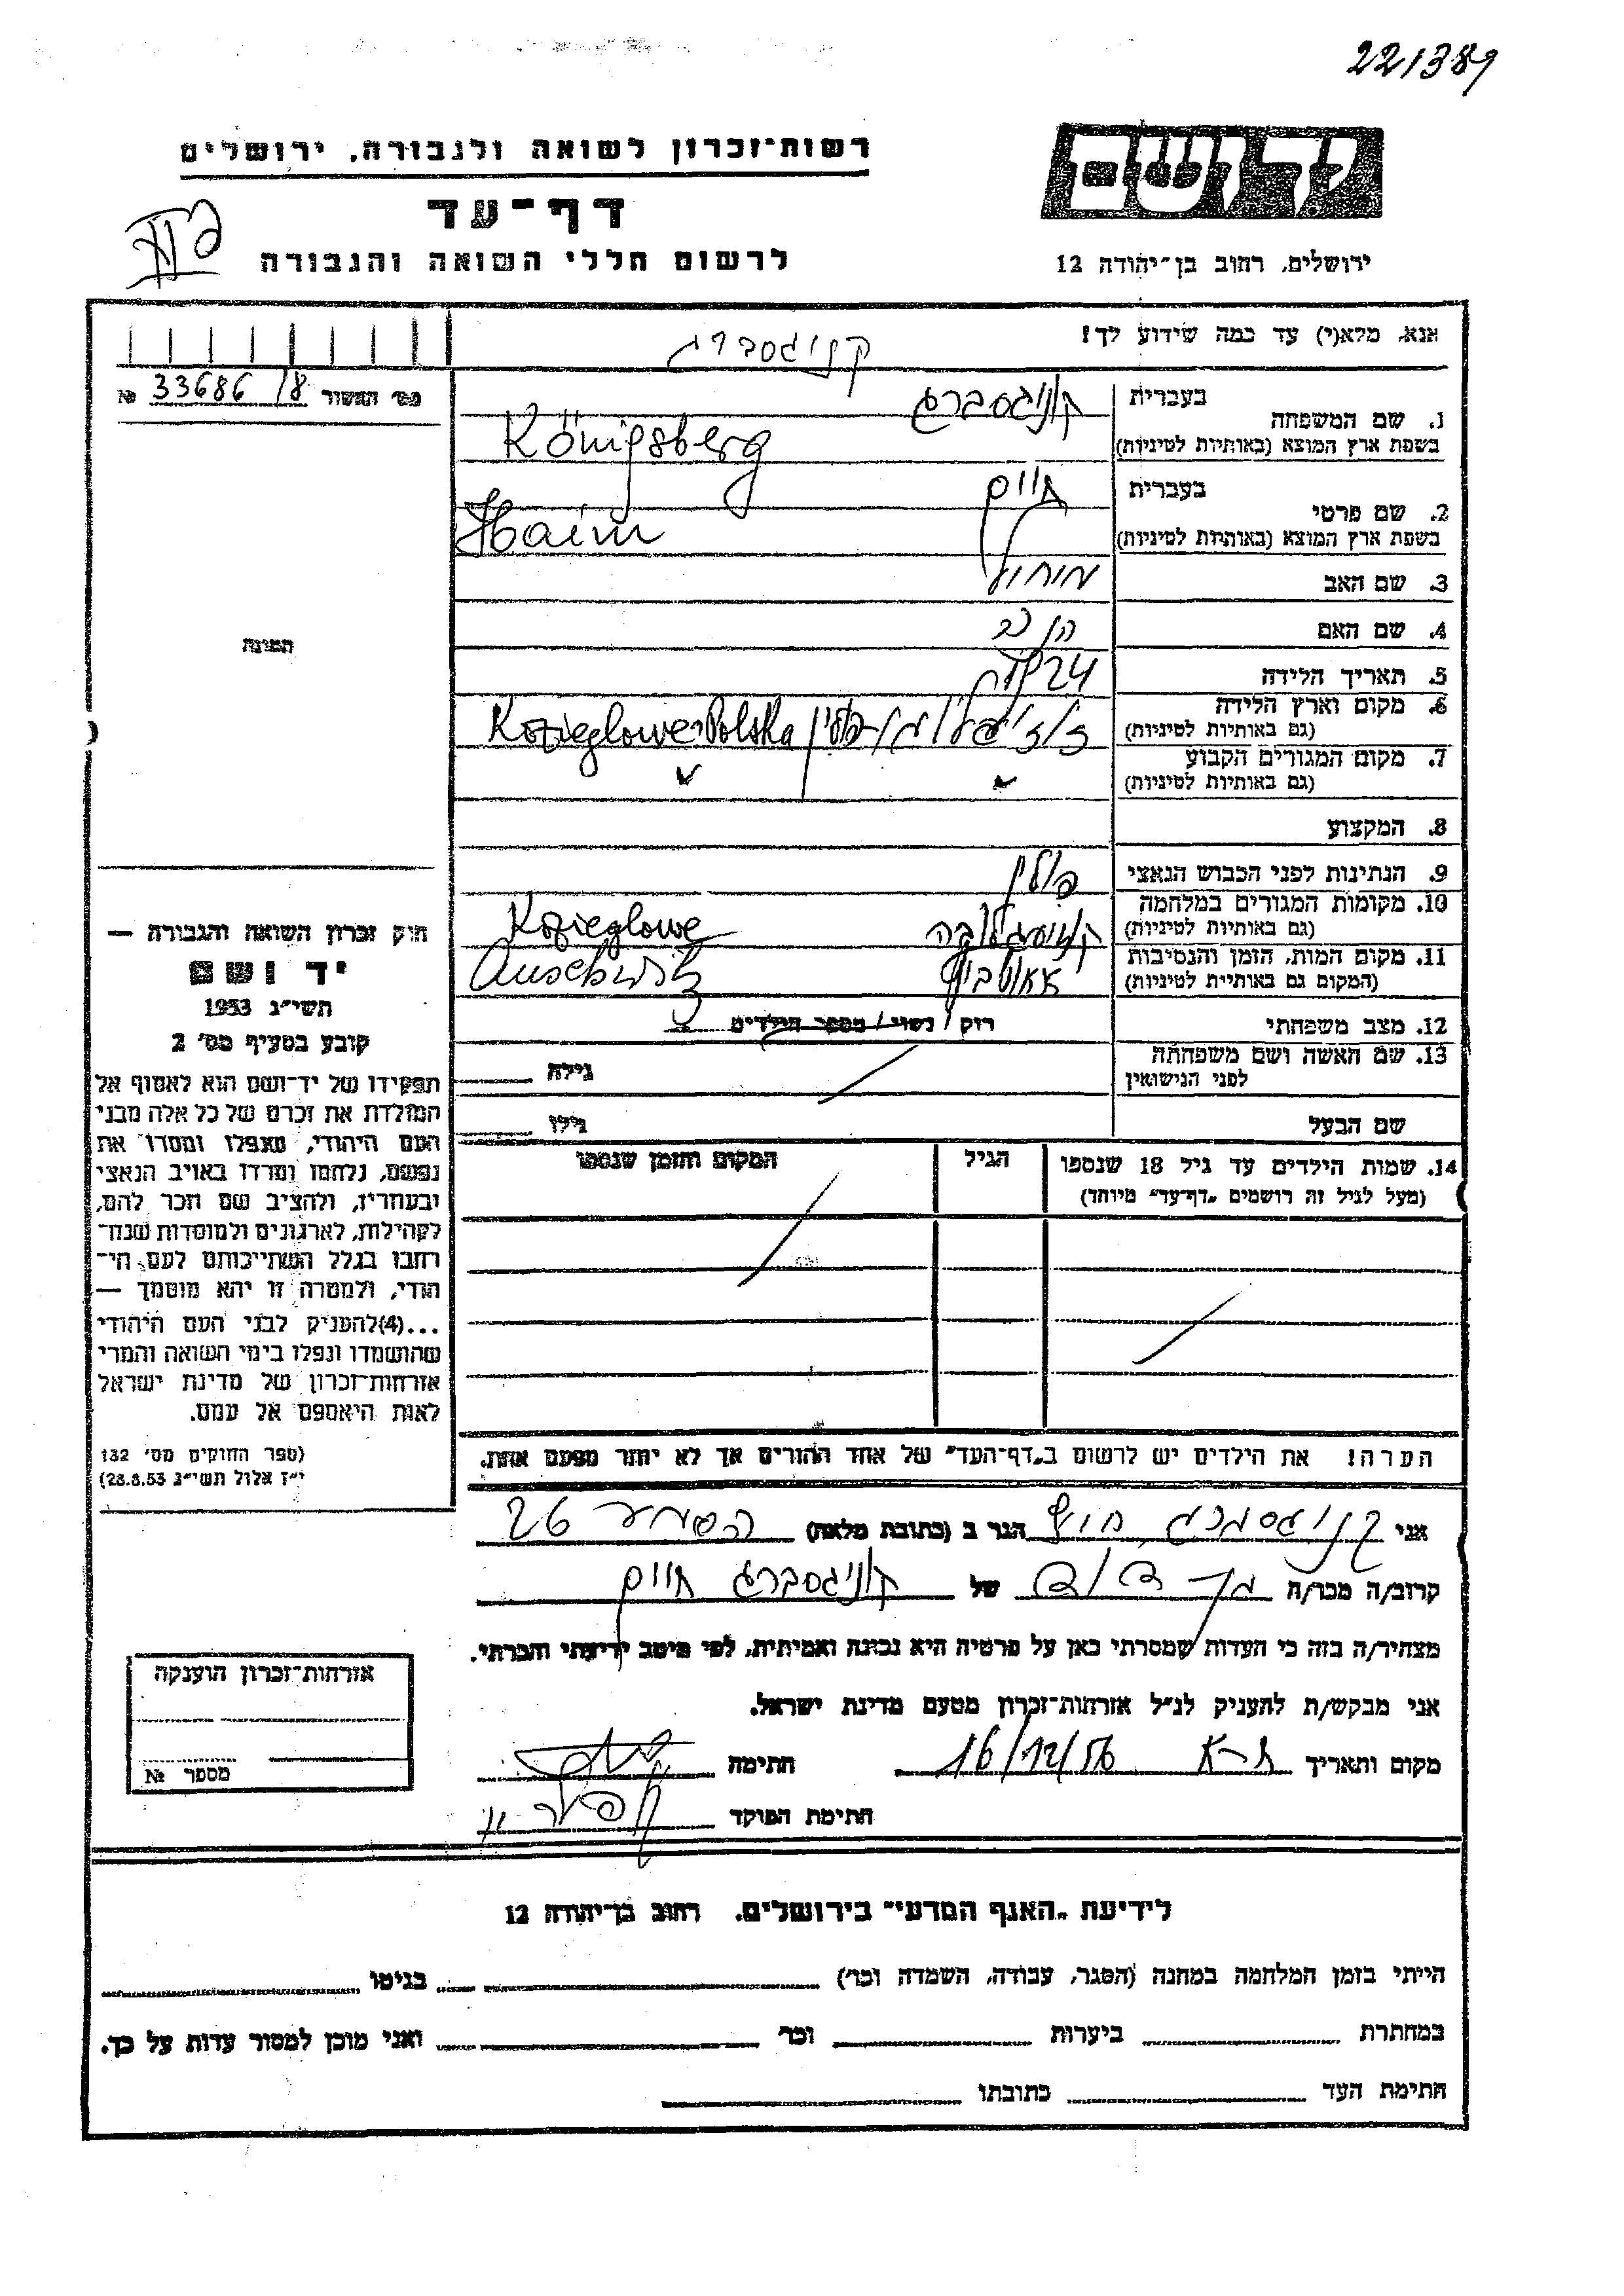 221389
רשות־זכרון לשואה ולגבורה, ירושלים
דף־עד
לרשום חללי השואה והגבורה
ירושלים, רחוב בן־יהודה 12
אנא, מלא(י) עד כמה שידוע לך!
קניגסברג
מס' האשור 33686/8 №
1. שם המשפחה
בעברית קוניגסברג
בשפת ארץ המוצא (באותיות לטיניות) Königsberg
2. שם פרטי
בעברית חיים
בשפת ארץ המוצא (באותיות לטיניות) Haim
3. שם האב
4. שם האם
5. תאריך הלידה
6. מקום וארץ הלידה
(גם באותיות לטיניות) פולין Kozieglowe-Polska
7. מקום המגורים הקבוע
(גם באותיות לטיניות)
8. המקצוע
9. הנתינות לפני הכבוש הנאצי פולין
10. מקומות המגורים במלחמה
(גם באותיות לטיניות) Kozieglowe
11. מקום המות, הזמן והנסיבות
(המקום גם באותיות לטיניות)
12. מצב משפחתי רוק / נשוי / מספר הילדים
13. שם האשה ושם משפחתה
לפני הנישואין גילה
שם הבעל גילו
14. שמות הילדים עד גיל 18 שנספו הגיל המקום והזמן שנספו
(מעל לגיל זה רושמים „דף־עד" מיוחד)
הערה! את הילדים יש לרשום ב„דף־העד" של אחד ההורים אך לא יותר מפעם אחת.
התמונה
חוק זכרון השואה והגבורה —
יד ושם
תשי"ג 1953
קובע בסעיף מס' 2
תפקידו של יד־ושם הוא לאסוף אל
המולדת את זכרם של כל אלה מבני
העם היהודי, שנפלו ומסרו את
נפשם, נלחמו ומרדו באויב הנאצי
ובעוזריו, ולהציב שם וזכר להם,
לקהילות, לארגונים ולמוסדות שנח־
רבו בגלל השתייכותם לעם הי־
הודי, ולמטרה זו יהא מוסמך —
...(4)להעניק לבני העם היהודי
שהושמדו ונפלו בימי השואה והמרי
אזרחות־זכרון של מדינת ישראל
לאות היאספם אל עמם.
(ספר החוקים מס' 132
י"ז אלול תשי"ג 28.8.53)
אני הגר ב (כתובת מלאה) 26
קרוב/ה מכר/ה של קוניגסברג חיים
מצהיר/ה בזה כי העדות שמסרתי כאן על פרטיה היא נכונה ואמיתית, לפי מיטב ידיעתי והכרתי.
אני מבקש/ת להעניק לנ"ל אזרחות־זכרון מטעם מדינת ישראל.
מקום ותאריך ת-א 16/12/56 חתימה
חתימת הפוקד
אזרחות־זכרון הוענקה
מספר №
לידיעת „האגף המדעי" בירושלים, רחוב בן־יהודה 12
הייתי בזמן המלחמה במחנה (הסגר, עבודה, השמדה וכו') בגיטו
במחתרת ביערות וכו' ואני מוכן למסור עדות על כך.
חתימת העד כתובתו